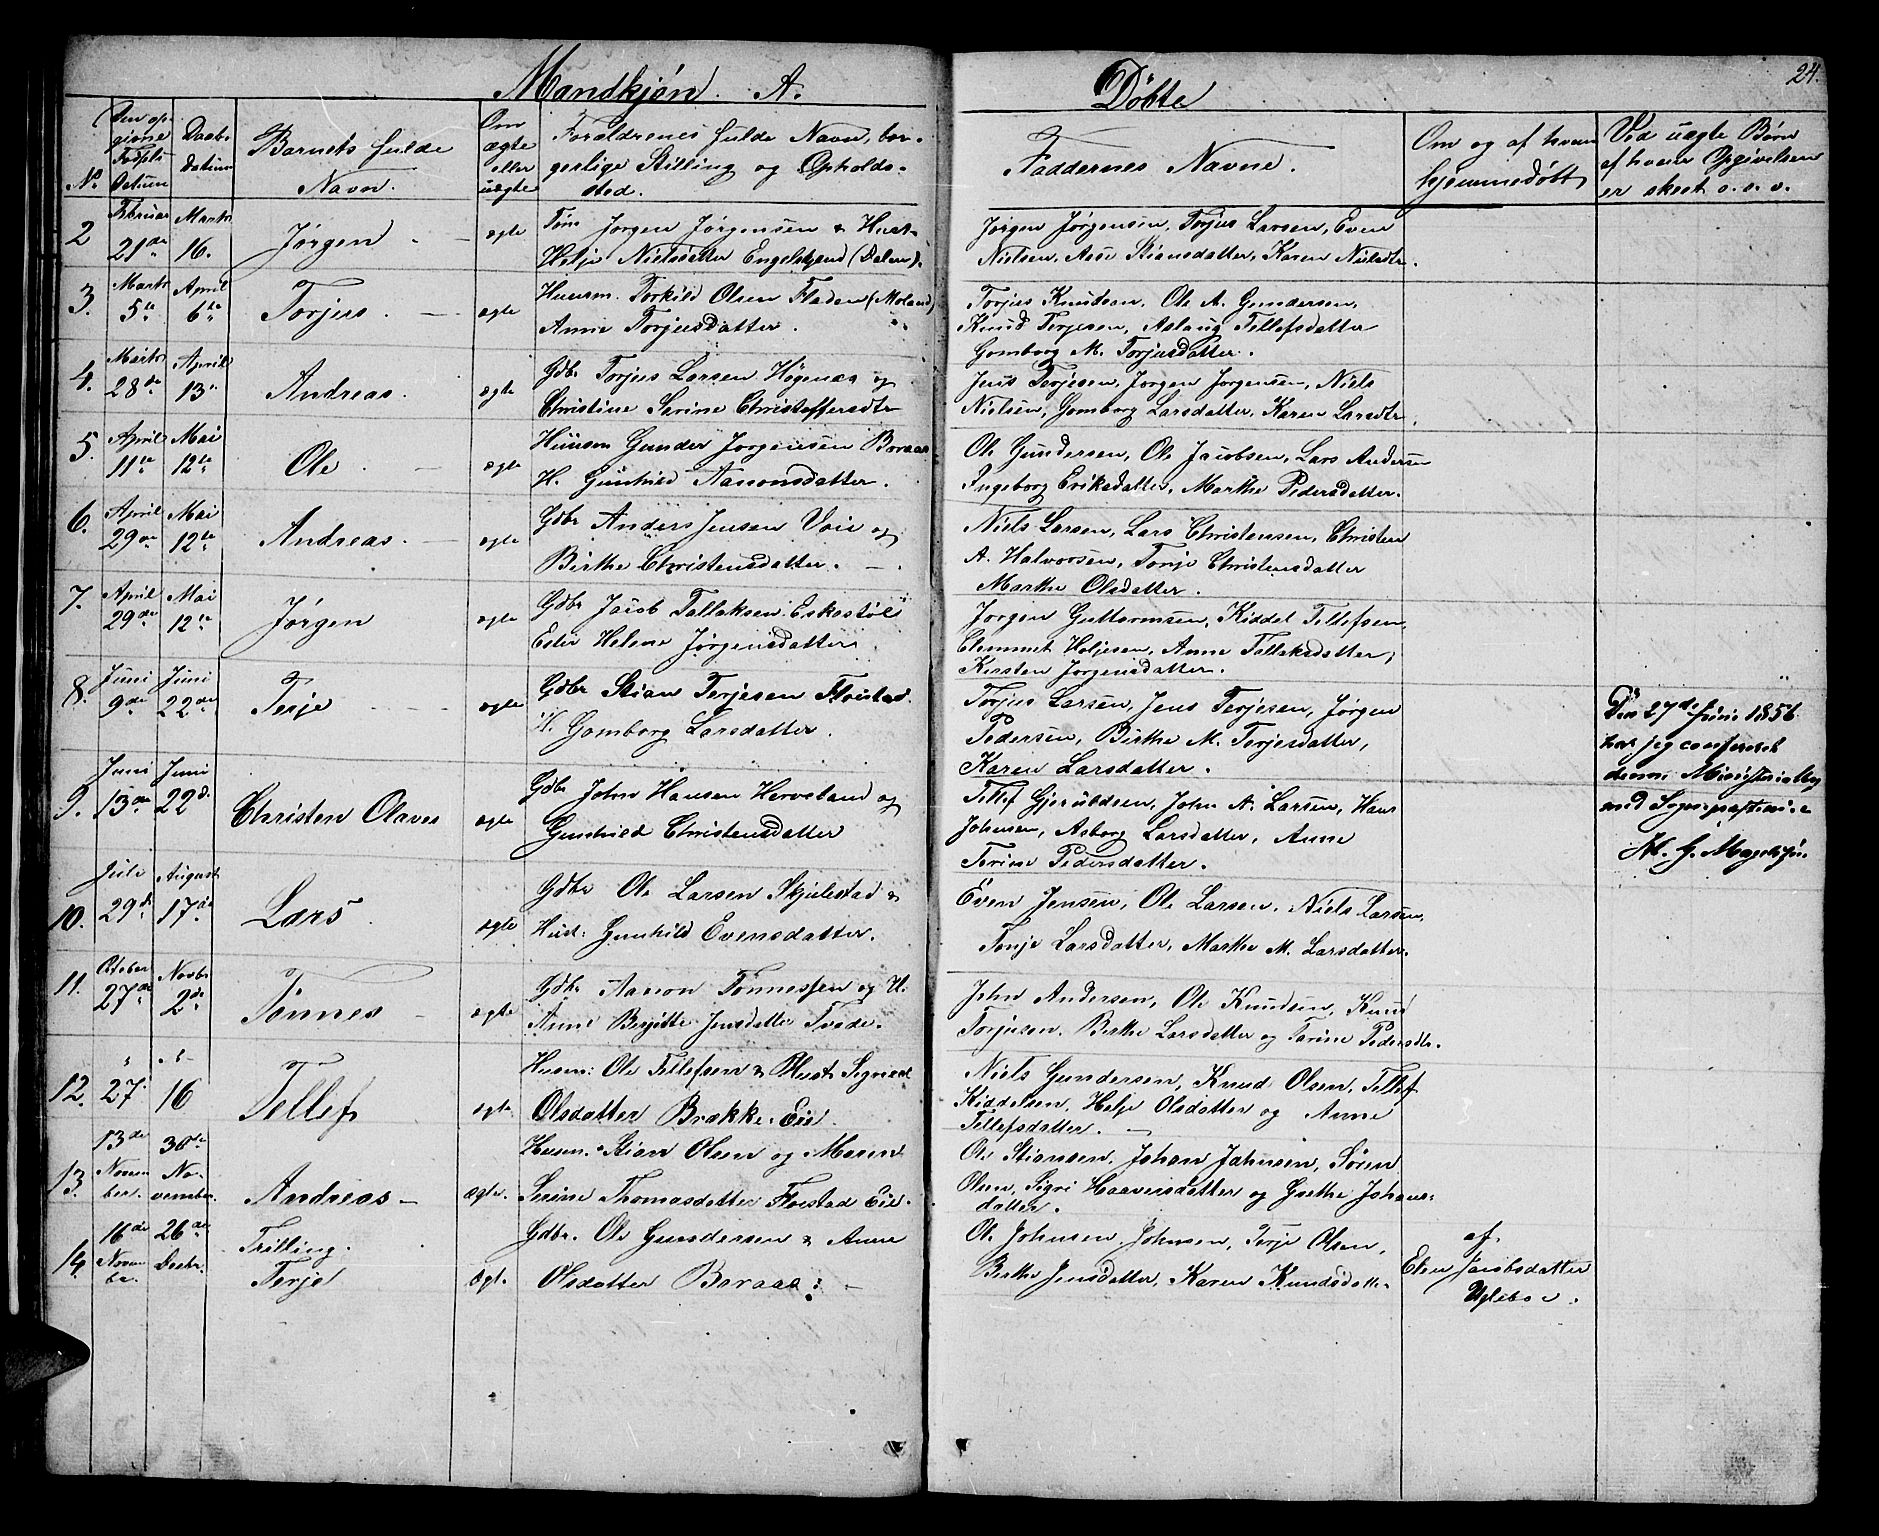 Mandkjøn. A.
Døbte
24.
No
Den op-
givne
Fødsels
Datum
Daabs
Datum
Barnets fulde
Navn.
Om
ægte
eller
uægte
Forældrenes fulde Navn, bor-
gerlige Stilling og Opholds-
sted.
Faddernes Navne.
Om og af hvem
hjemmedøbt
Vid uægte Børn
af hvem Opgivelsen
er skeet o. s. v.
2
Februar
21de
Marts
16.
Jørgen
ægte
Jørgen Jørgensen & Hust.
Helje Nielsdatter Engelskjønd (Dalen).
Jørgen Jørgensen, Torjus Larsen, Even
Nielsen, Aase Stiansdatter, Karen Nielsdtr.
3.
Marts
5te
April
6te
Torjus.
ægte
Huusm. Torkild Olsen Fladen (Moland)
Anne Torjusdatter.
Torjus Knudsen, Ole A. Gundersen,
Knud Terjesen, Aslaug Tellefsdatter
Gomborg M. Torjusdatter.
4.
Marts
28de
April
13.
Andreas.
ægte
Gdbr Torjus Larsen Høgenæs og
Christine Serine Christoffersdtr
Jens Terjesen, Jørgen Jørgensen, Niels
Nielsen, Gomborg Larsdatter, Karen Larsdtr.
5.
April
11te
Mai
12te
Ole
ægte
Huusm Gunder Jørgensen Boraas
H. Gunhild Aanonsdatter.
Ole Gundersen, Ole Jacobsen, Lars Andersen
Ingeborg Eriksdatter, Marthe Pedersdatter.
6.
April
29de
Mai
12te
Andreas.
ægte
Gdbr Anders Jensen Voie og
Birthe Christensdatter.
Niels Larsen, Lars Christensen, Christen
A. Halvorsen, Tonje Christensdatter
Marthe Olsdatter.
7.
April
29de
Mai
12te
Jørgen
ægte
Gdbr Jacob Tallaksen Eskestøl
Ester Helene Jørgensdatter.
Jørgen Guttormsen, Kiddel Tellefsen,
Clemmet Holjesen, Anne Tallaksdatter,
Kirsten Jørgensdatter.
8.
Juni
9de
Juni
22de
Terje
ægte
Gdbr Stian Terjesen Flovstad.
H. Gomborg Larsdatter.
Torjus Larsen, Jens Terjesen, Jørgen
Pedersen, Birthe M. Terjesdatter,
Karen Larsdatter.
Den 27de Juni 1856
har jeg confereret
denne Ministerialbog
med Sognepræstens
9.
Juni
13de
Juni
22d.
Christen Olaves
ægte
Gdbr John Hansen Herveland og
Gunhild Christensdatter
Tellef Gjeruldsen, John A. Larsen, Hans
Johnsen, Asborg Larsdatter, Anne
Terine Pedersdatter.
10.
Juli
29d.
August
17de
Lars
ægte
Gdbr Ole Larsen Skjulestad &
Hust: Gunhild Evensdatter.
Even Jensen, Ole Larsen, Niels Larsen,
Tonje Larsdatter, Marthe M. Larsdatter.
11.
October
27de
Novbr
2de
Tønnes
ægte
Gdbr Aanon Tønnessen og H.
Anne Bergitte Jensdatter Tvede.
John Andersen, Ole Knudsen, Knud
Torjusen, Birthe Larsdatter og Tarine Pedersdtr.
12.
"
27.
"
16
Tellef
ægte
Husm: Ole Tellefsen & Hust Segned
Olsdatter Brække. Eie
Niels Gundersen, Knud Olsen, Tellef
Kiddelsen, Helje Olsdatter og Anne
Tellefsdatter.
13.
13de
Novem
ber.
30te
No-
vember
Andreas
ægte.
Husm. Stian Olsen og Maren
Serine Thomasdatter Flovstad Eie.
Ole Stiansen, Johan Johnsen, Søren
Olsen, Sigri Haaversdatter og Grethe Johans-
datter.
14.
16de
Novem
br.
26de
Decbr.
Trilling.
Terje
Ægt.
Gdbr. Ole Gundersen & Anne
Olsdatter Boraas:
Ole Johnsen, Johnsen, Terje Olsen,
Birthe Jensdatter, Karen Knudsdatter
af.
Elen Jacobsdatter